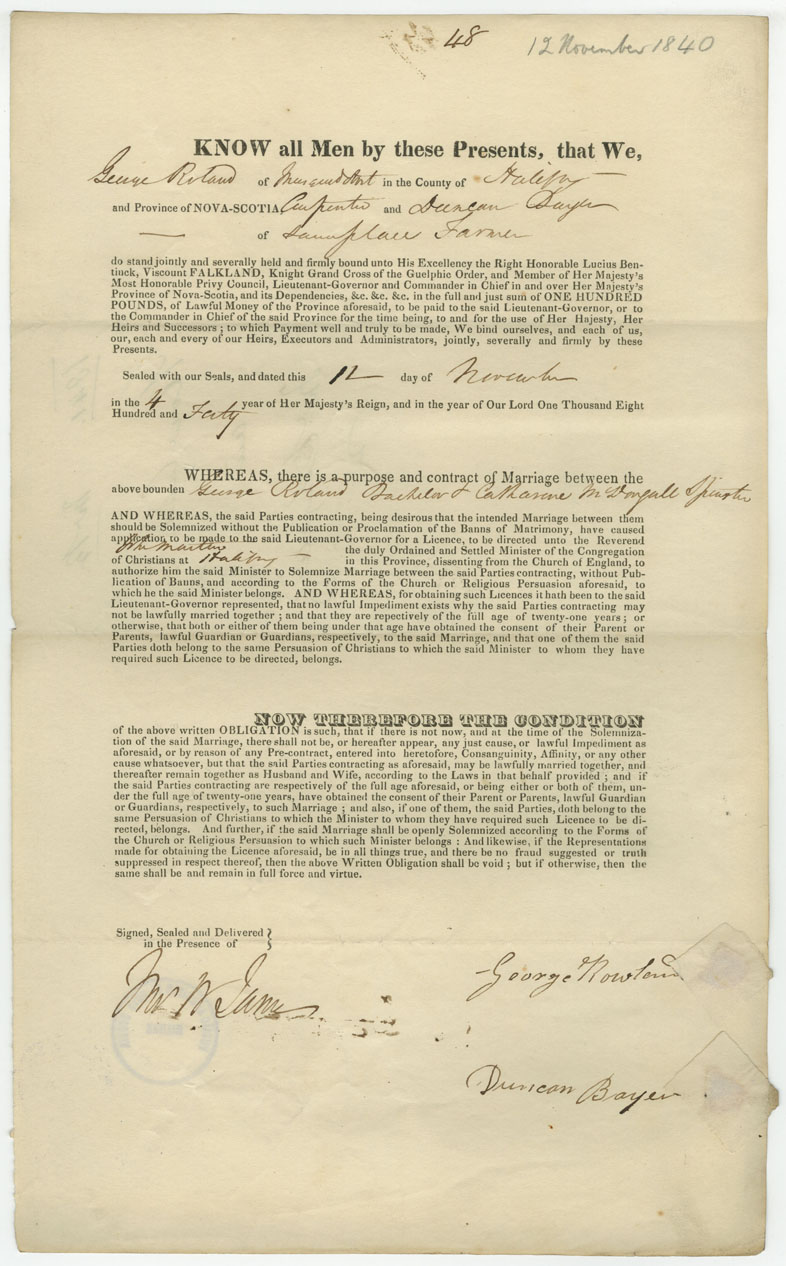 48
12 November 1840
KNOW all Men by these Presents, that We,
George Roland of Musquodobt in the County of Halifax
and Province of NOVA-SCOTIA Carpenter and Duncan Bayer
of same place Farmer
do stand jointly and severally held and firmly bound unto His Excellency the Right Honorable Lucius Ben-
tinck, Viscount FALKLAND, Knight Grand Cross of the Guelphic Order, and Member of Her Majesty's
Most Honorable Privy Council, Lieutenant-Governor and Commander in Chief in and over Her Majesty's
Province of Nova-Scotia, and its Dependencies, &c. &c. &c. in the full and just sum of ONE HUNDRED
POUNDS, of Lawful Money of the Province aforesaid, to be paid to the said Lieutenant-Governor, or to
the Commander in Chief of the said Province for the time being, to and for the use of Her Hajesty, Her
Heirs and Successors ; to which Payment well and truly to be made, We bind ourselves, and each of us,
our, each and every of our Heirs, Executors and Administrators, jointly, severally and firmly by these
Presents.
Sealed with our Seals, and dated this 12 day of November
in the 4 year of Her Majesty's Reign, and in the year of Our Lord One Thousand Eight
Hundred and Forty
WHEREAS, there is a purpose and contract of Marriage between the
above bounden George Roland Bachelor & Catharine McDougall Spinster
AND WHEREAS, the said Parties contracting, being desirous that the intended Marriage between them
should be Solemnized without the Publication or Proclamation of the Banns of Matrimony, have caused
application to be made to the said Lieutenant-Governor for a Licence, to be directed unto the Reverend
John Martin the duly Ordained and Settled Minister of the Congregation
of Christians at Halifax in this Province, dissenting from the Church of England, to
authorize him the said Minister to Solemnize Marriage between the said Parties contracting, without Pub-
lication of Banns, and according to the Forms of the Church or Religious Persuasion aforesaid, to
which he the said Minister belongs. AND WHEREAS, for obtaining such Licences it hath been to the said
Lieutenant-Governor represented, that no lawful Impediment exists why the said Parties contracting may
not be lawfully married together ; and that they are repectively of the full age of twenty-one years ; or
otherwise, that both or either of them being under that age have obtained the consent of their Parent or
Parents, lawful Guardian or Guardians, respectively, to the said Marriage, and that one of them the said
Parties doth belong to the same Persuasion of Christians to which the said Minister to whom they have
required such Licence to be directed, belongs.
NOW THEREFORE THE CONDITION
of the above written OBLIGATION is such, that if there is not now, and at the time of the Solemniza-
tion of the said Marriage, there shall not be, or hereafter appear, any just cause, or lawful Impediment as
aforesaid, or by reason of any Pre-contract, entered into heretofore, Consanguinity, Affinity, or any other
cause whatsoever, but that the said Parties contracting as aforesaid, may be lawfully married together, and
thereafter remain together as Husband and Wife, according to the Laws in that behalf provided ; and if
the said Parties contracting are respectively of the full age aforesaid, or being either or both of them, un-
der the full age of twenty-one years, have obtained the consent of their Parent or Parents, lawful Guardian
or Guardians, respectively, to such Marriage ; and also, if one of them, the said Parties, doth belong to the
same Persuasion of Christians to which the Minister to whom they have required such Licence to be di-
rected, belongs. And further, if the said Marriage shall be openly Solemnized according to the Forms of
the Church or Religious Persuasion to which such Minister belongs : And likewise, if the Representations
made for obtaining the Licence aforesaid, be in all things true, and there be no fraud suggested or truth
suppressed in respect thereof, then the above Written Obligation shall be void ; but if otherwise, then the
same shall be and remain in full force and virtue.
Signed, Sealed and Delivered
in the Presence of
George Rowland
Duncan Bayer